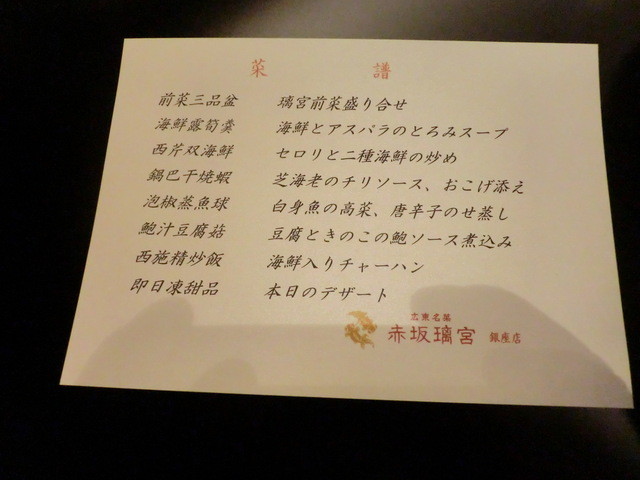 菜 譜
前菜三品盆 璃宮前菜盛り合せ
海鮮露筍羹 海鮮とアスパラのとろみスープ
西芹双海鮮 セロリと二種海鮮の炒め
鍋巴干焼蝦 芝海老のチリソース、おこげ添え
泡椒蒸魚球 白身魚の高菜、唐辛子のせ蒸し
鮑汁豆腐菇 豆腐ときのこの鮑ソース煮込み
西施精炒飯 海鮮入りチャーハン
即日凍甜品 本日のデザート
広東名菜
赤坂璃宮 銀座店